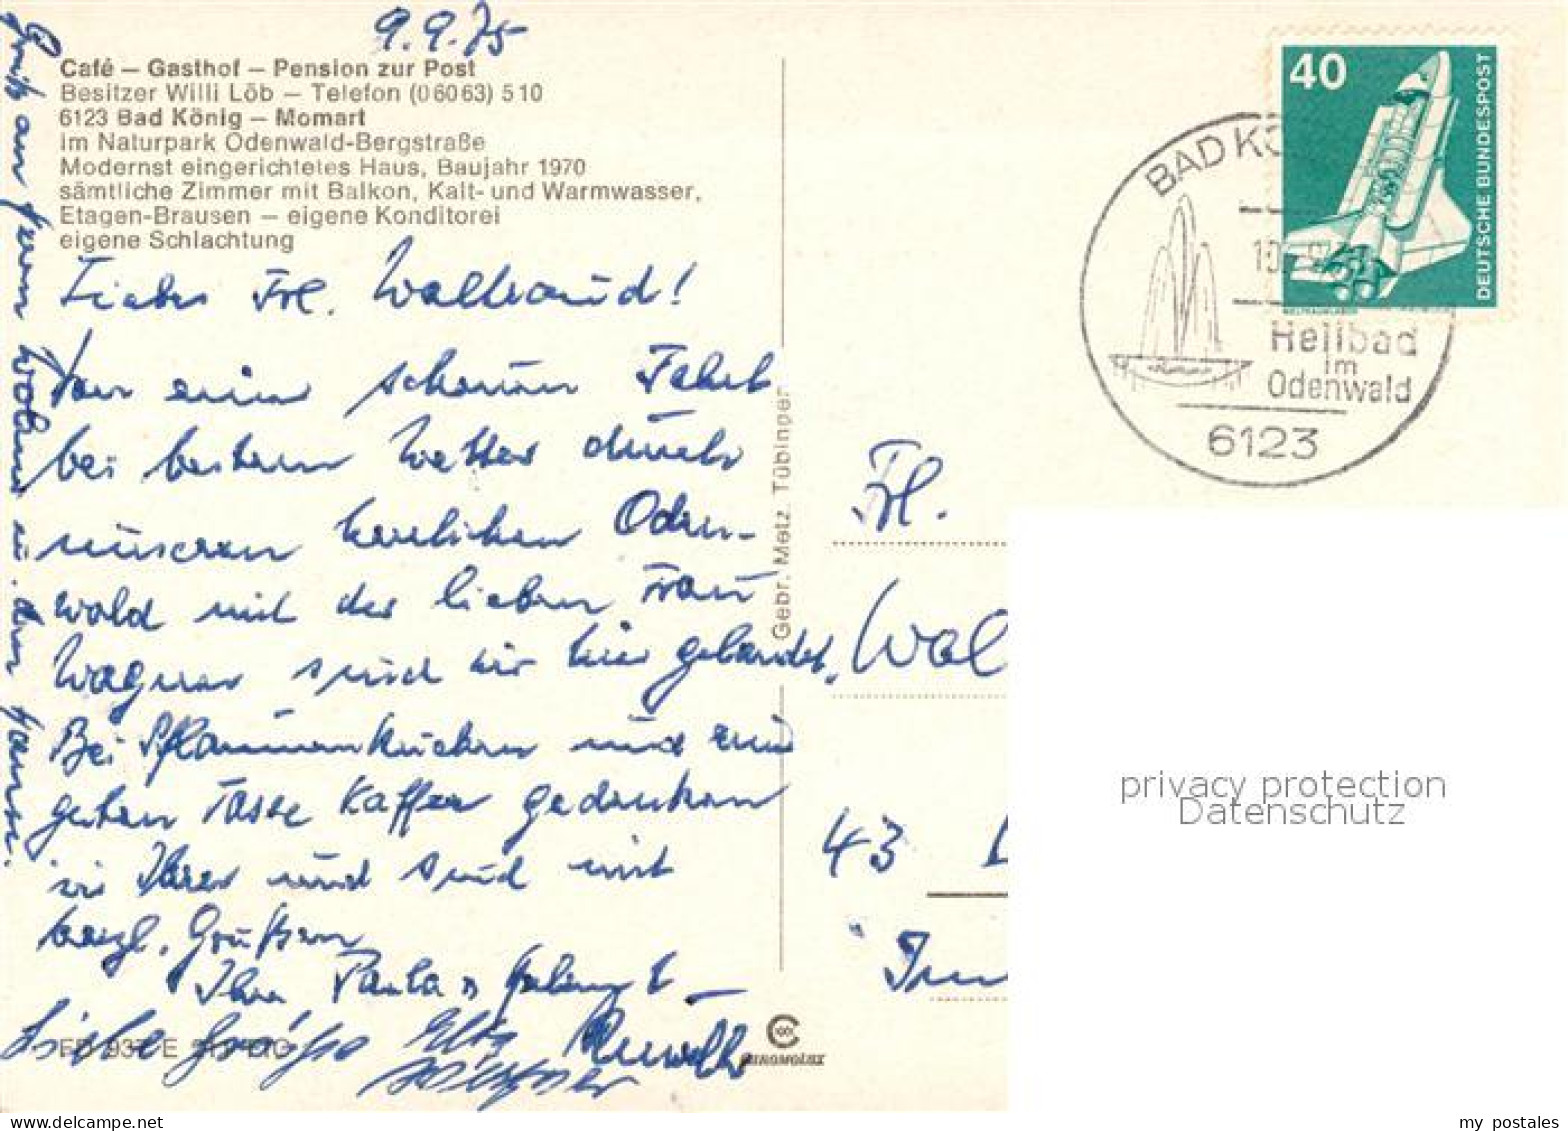 9.9.75
Café — Gasthof — Pension zur Post
Besitzer Willi Löb — Telefon (06063) 510
6123 Bad König — Momart
im Naturpark Odenwald-Bergstraße
Modernst eingerichtetes Haus, Baujahr 1970
sämtliche Zimmer mit Balkon, Kalt- und Warmwasser,
Etagen-Brausen — eigene Konditorei
eigene Schlachtung
Liebes Frl. Waltraud!
Von einer schönen Fahrt
bei bestem Wetter durch
unseren herrlichen Oden-
wald mit der lieben Frau
Wagner sind wir hier gelandet.
Bei Pflaumenkuchen und einer
guten Tasse Kaffee gedenken
wir Ihrer und sind mit
herzl. Grüßen
Ihre Paula
Liebe Grüße
Gebr. Metz, Tübingen
40
DEUTSCHE BUNDESPOST
BAD KÖ
Heilbad
im
Odenwald
6123
Frl.
Wal
43
privacy protection
Datenschutz
my postales